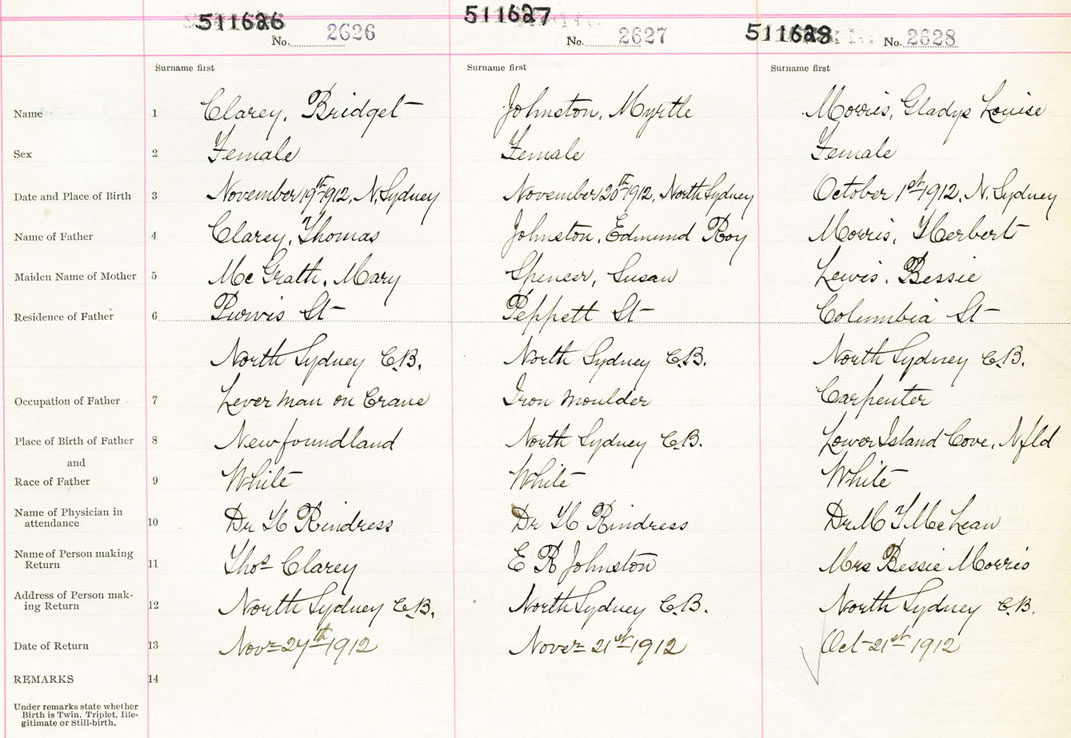 511626 511627 511628
No. 2626 No. 2627 No. 2628
Surname first Surname first Surname first
Name 1 Clarey, Bridget Johnston, Myrtle Morris, Gladys Louise
Sex 2 Female Female Female
Date and Place of Birth 3 November 19th 1912, N. Sydney November 20th 1912, North Sydney October 1st 1912, N. Sydney
Name of Father 4 Clarey, Thomas Johnston, Edmund Roy Morris, Herbert
Maiden Name of Mother 5 McGrath, Mary Spencer, Susan Lewis, Bessie
Residence of Father 6 Purvis St Peppett St Columbia St
North Sydney C.B. North Sydney C.B. North Sydney C.B.
Occupation of Father 7 Lever man on Crane Iron Moulder Carpenter
Place of Birth of Father 8 Newfoundland North Sydney C.B. Lower Island Cove, Nfld
and
Race of Father 9 White White White
Name of Physician in
attendance 10 Dr H Rindress Dr H Rindress Dr M T McLean
Name of Person making
Return 11 Thos Clarey E R Johnston Mrs Bessie Morris
Address of Person mak-
ing Return 12 North Sydney C.B. North Sydney C.B. North Sydney C.B.
Date of Return 13 Novr 27th 1912 Nover 21st 1912 Oct 21st 1912
REMARKS 14
Under remarks state whether
Birth is Twin, Triplet, Ille-
gitimate or Still-birth.